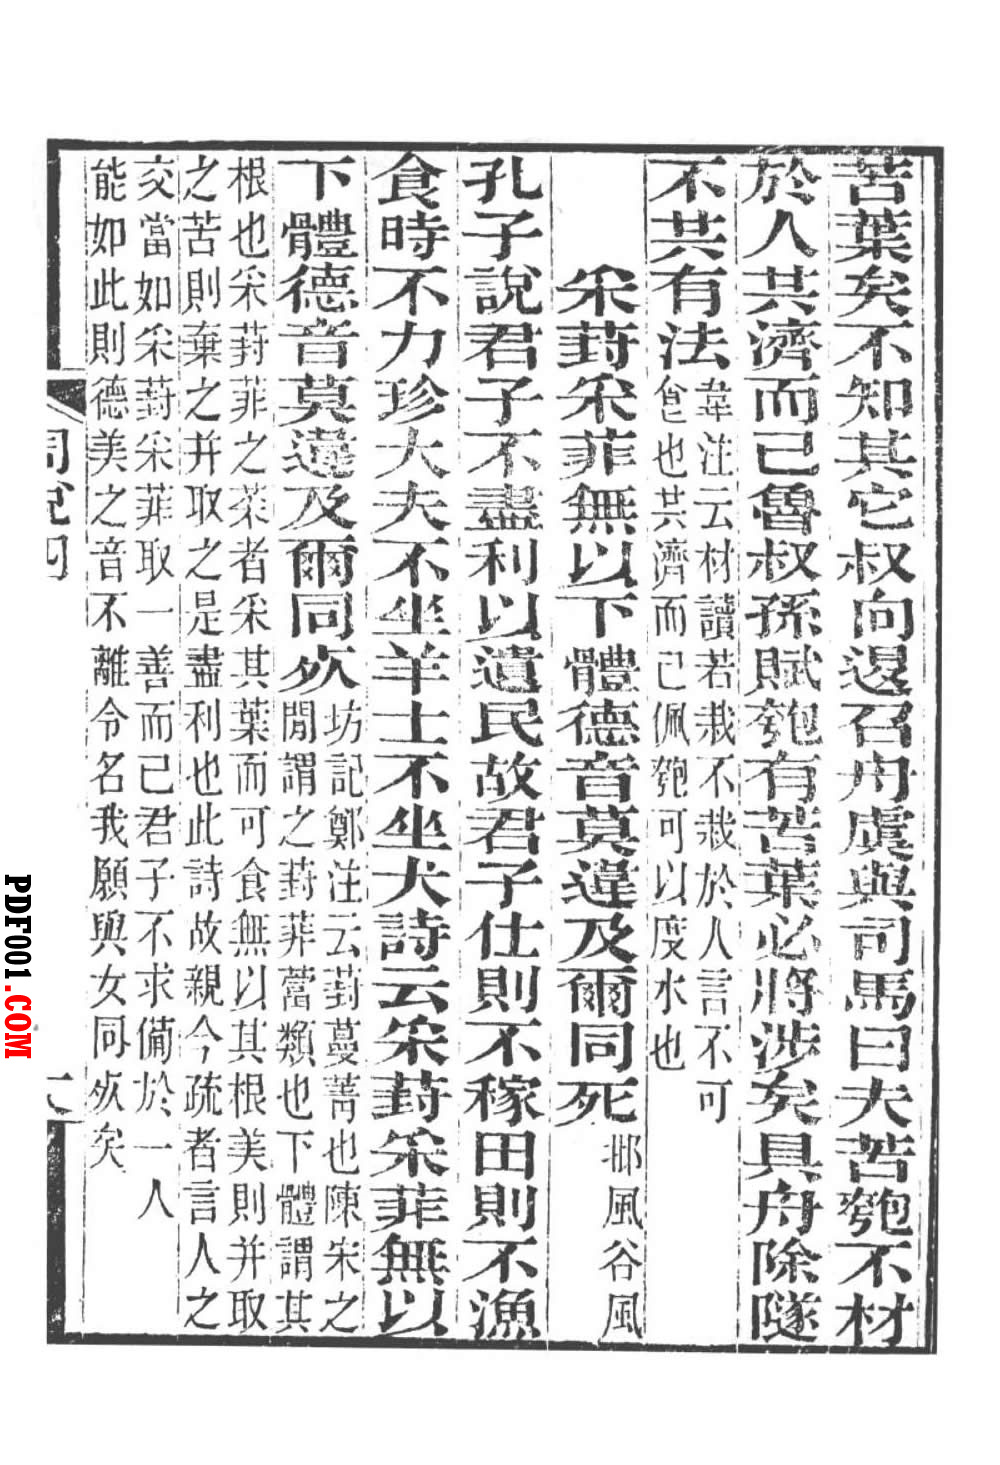 苦葉矣不知其它叔向退召舟虞與司馬曰夫苦匏不材
於人共濟而已魯叔孫賦匏有苦葉必將涉矣具舟除隧
不共有法
韋注云材讀若裁不裁於人言不可
食也共濟而已佩匏可以度水也
采葑采菲無以下體德音莫違及爾同死
邶風谷風
孔子說君子不盡利以遺民故君子仕則不稼田則不漁
食時不力珍大夫不坐羊士不坐犬詩云采葑采菲無以
下體德音莫違及爾同死
坊記鄭注云葑蔓菁也陳宋之
閒謂之葑菲葍類也下體謂其
根也采葑菲之菜者采其葉而可食無以其根美則并取
之苦則棄之并取之是盡利也此詩故親今疏者言人之
交當如采葑采菲取一善而已君子不求備於一人
能如此則德美之音不離令名我願與女同死矣
PDF001.COM